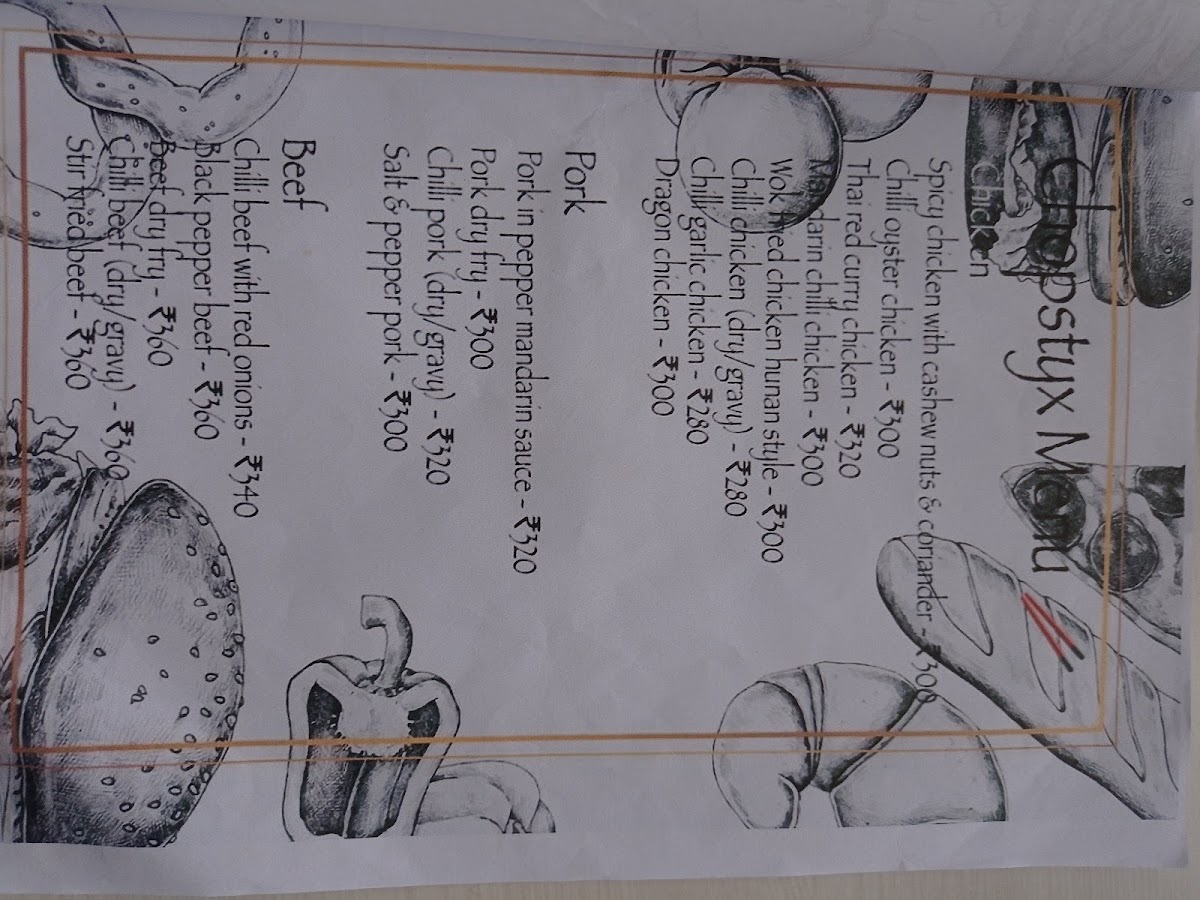 Chopstyx Menu
Chicken
Spicy chicken with cashew nuts & coriander - ₹300
Chilli oyster chicken - ₹300
Thai red curry chicken - ₹320
Mandarin chilli chicken - ₹300
Wok fried chicken hunan style - ₹300
Chilli chicken (dry/gravy) - ₹280
Chilli garlic chicken - ₹280
Dragon chicken - ₹300
Pork
Pork in pepper mandarin sauce - ₹320
Pork dry fry - ₹300
Chilli pork (dry/gravy) - ₹320
Salt & pepper pork - ₹300
Beef
Chilli beef with red onions - ₹340
Black pepper beef - ₹360
Beef dry fry - ₹360
Chilli beef (dry/gravy) - ₹360
Stir fried beef - ₹360